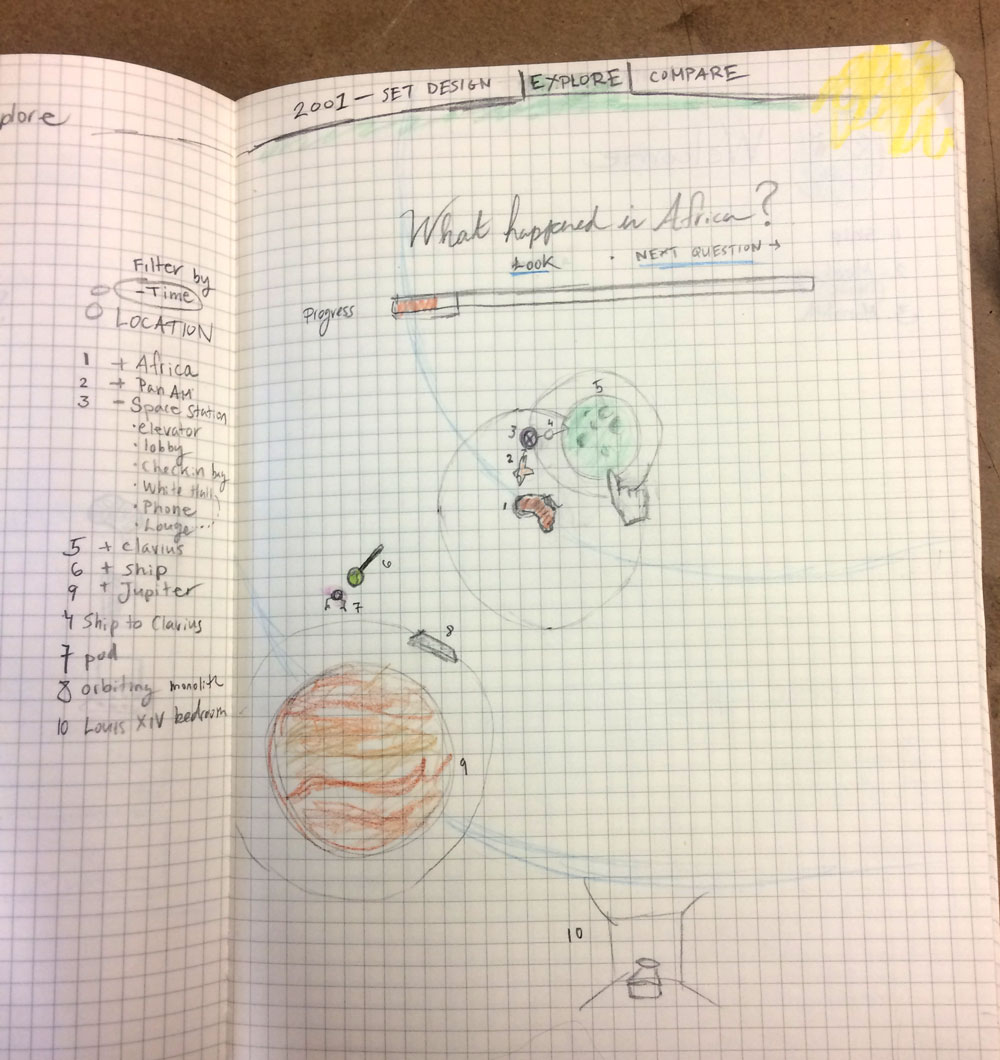 plore
Filter by
- Time
LOCATION
1 + Africa
2 + Pan Am
3 - Space Station
• elevator
• lobby
• Check in
• White Hall
• Phone
• Louge...
5 + clavius
6 + ship
9 + Jupiter
4 Ship to Clavius
7 pod
8 orbiting monolith
10 Louis XIV bedroom
2001 — SET DESIGN EXPLORE COMPARE
What happened in Africa?
Look • NEXT QUESTION →
Progress
5
4
3
2
1
6
7
8
9
10